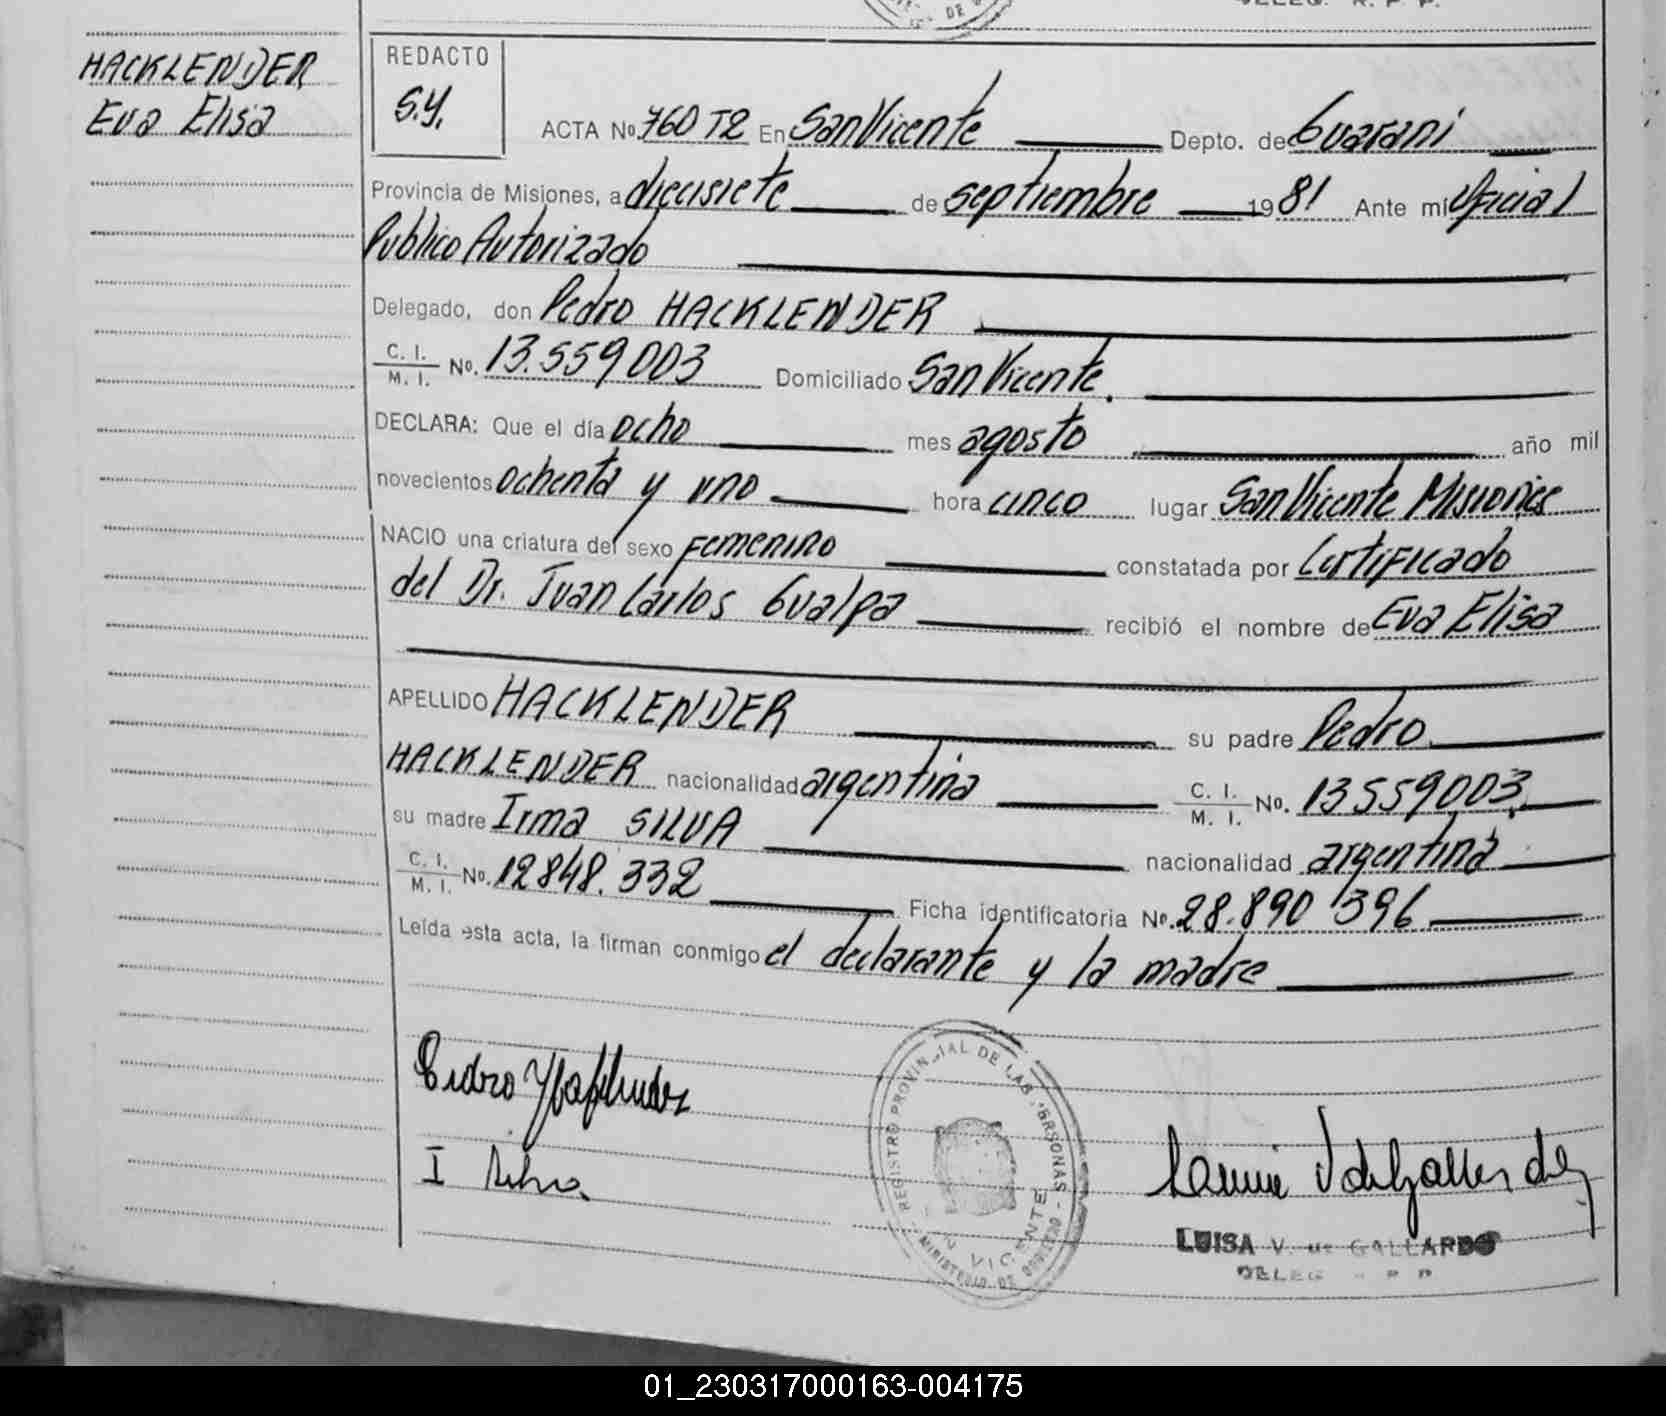 HACKLENDER
Eva Elisa
REDACTO
S.Y.
ACTA No. 760 T2 En San Vicente Depto. de Guarani
Provincia de Misiones, a diecisiete de septiembre 1981 Ante mi Oficial
Publico Autorizado
Delegado, don Pedro HACKLENDER
C. I. / M. I. No. 13.559003 Domiciliado San Vicente.
DECLARA: Que el día ocho mes agosto año mil
novecientos ochenta y uno hora cinco lugar San Vicente Misiones
NACIO una criatura del sexo Femenino constatada por Certificado
del Dr. Juan Carlos Gualpa recibió el nombre de Eva Elisa
APELLIDO HACKLENDER su padre Pedro
HACKLENDER nacionalidad argentina C. I. / M. I. No. 13559003
su madre Irma SILVA nacionalidad argentina
C. I. / M. I. No. 12848.332 Ficha identificatoria No. 28.890 396
Leída esta acta, la firman conmigo el declarante y la madre
Pedro
I Silva
REGISTRO PROVINCIAL DE LAS PERSONAS
MINISTERIO DE GOBIERNO
VICENTE
LUISA V. de GALLARDO
DELEG. R. P. P.
01_230317000163-004175